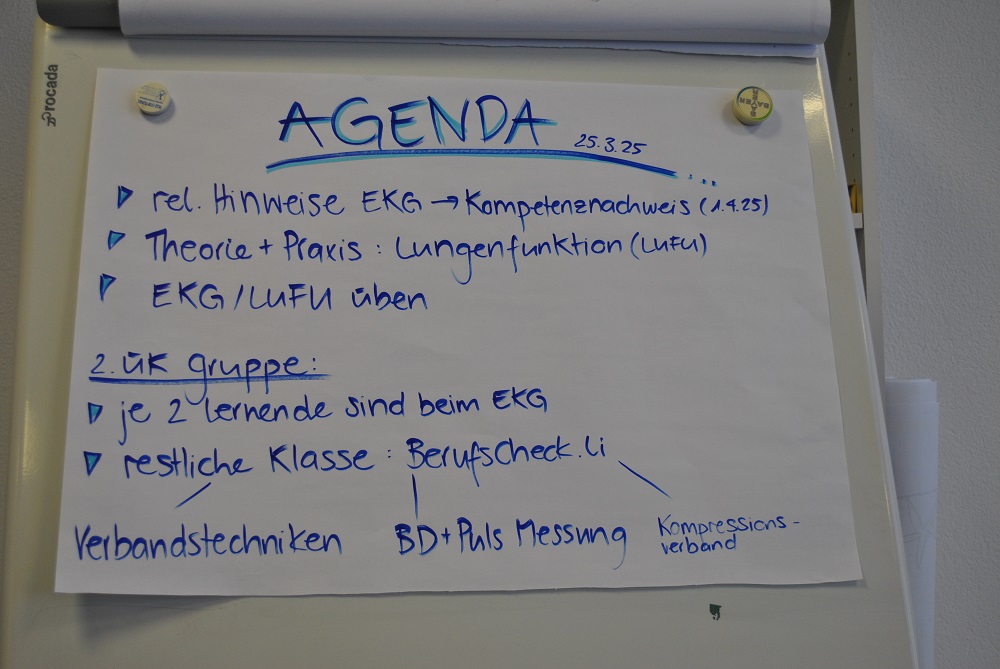 rocada
AGENDA 25.3.25
rel. Hinweise EKG → Kompetenznachweis (1.4.25)
Theorie + Praxis : Lungenfunktion (LUFU)
EKG/LUFU üben
2. ÜK gruppe:
je 2 lernende sind beim EKG
restliche Klasse : BerufsCheck.li
Verbandstechniken BD+Puls Messung Kompressions-
verband
BAYER